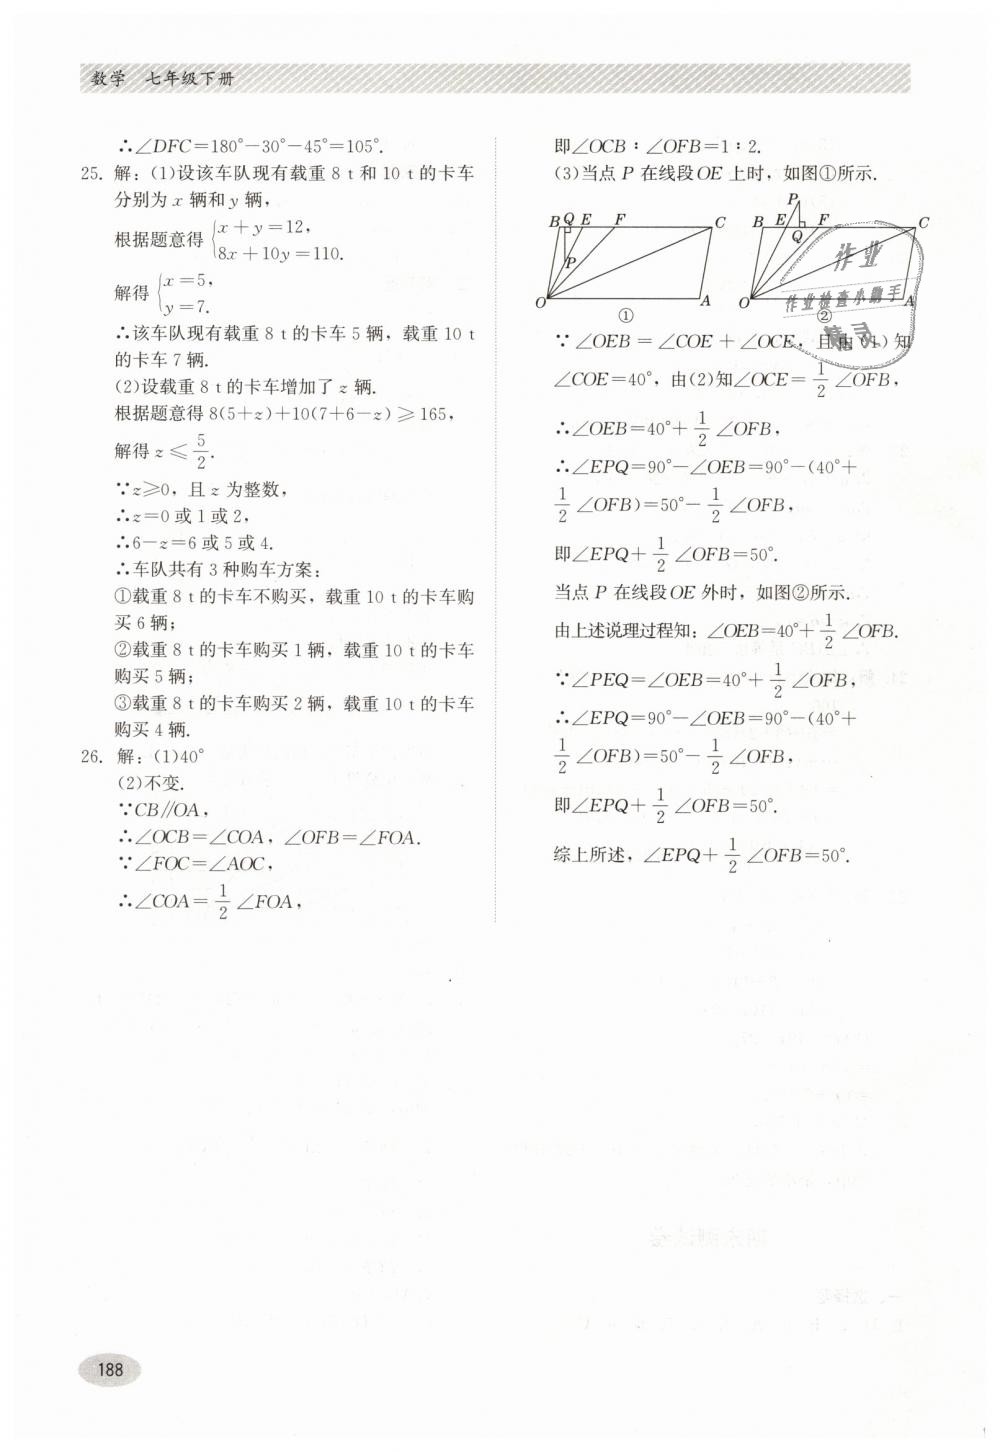 数学 七年级下册
∴∠DFC=180°-30°-45°=105°.
25. 解：(1)设该车队现有载重 8 t 和 10 t 的卡车
分别为 x 辆和 y 辆，
根据题意得 {x+y=12,
8x+10y=110.
解得 {x=5,
y=7.
∴该车队现有载重 8 t 的卡车 5 辆，载重 10 t
的卡车 7 辆.
(2)设载重 8 t 的卡车增加了 z 辆.
根据题意得 8(5+z)+10(7+6-z)≥165,
解得 z≤5/2.
∵z≥0，且 z 为整数，
∴z=0 或 1 或 2,
∴6-z=6 或 5 或 4.
∴车队共有 3 种购车方案：
①载重 8 t 的卡车不购买，载重 10 t 的卡车购
买 6 辆；
②载重 8 t 的卡车购买 1 辆，载重 10 t 的卡车
购买 5 辆；
③载重 8 t 的卡车购买 2 辆，载重 10 t 的卡车
购买 4 辆.
26. 解：(1)40°
(2)不变.
∵CB∥OA,
∴∠OCB=∠COA，∠OFB=∠FOA.
∵∠FOC=∠AOC,
∴∠COA=1/2∠FOA,
即∠OCB∶∠OFB=1∶2.
(3)当点 P 在线段 OE 上时，如图①所示.
B Q E F C
P
O A
①
P
B E F C
Q
O A
②
作业
作业检查小助手
∵∠OEB=∠COE+∠OCE，且由(1)知
∠COE=40°，由(2)知∠OCE=1/2∠OFB,
∴∠OEB=40°+1/2∠OFB,
∴∠EPQ=90°-∠OEB=90°-(40°+
1/2∠OFB)=50°-1/2∠OFB,
即∠EPQ+1/2∠OFB=50°.
当点 P 在线段 OE 外时，如图②所示.
由上述说理过程知：∠OEB=40°+1/2∠OFB.
∵∠PEQ=∠OEB=40°+1/2∠OFB,
∴∠EPQ=90°-∠OEB=90°-(40°+
1/2∠OFB)=50°-1/2∠OFB,
即∠EPQ+1/2∠OFB=50°.
综上所述，∠EPQ+1/2∠OFB=50°.
188